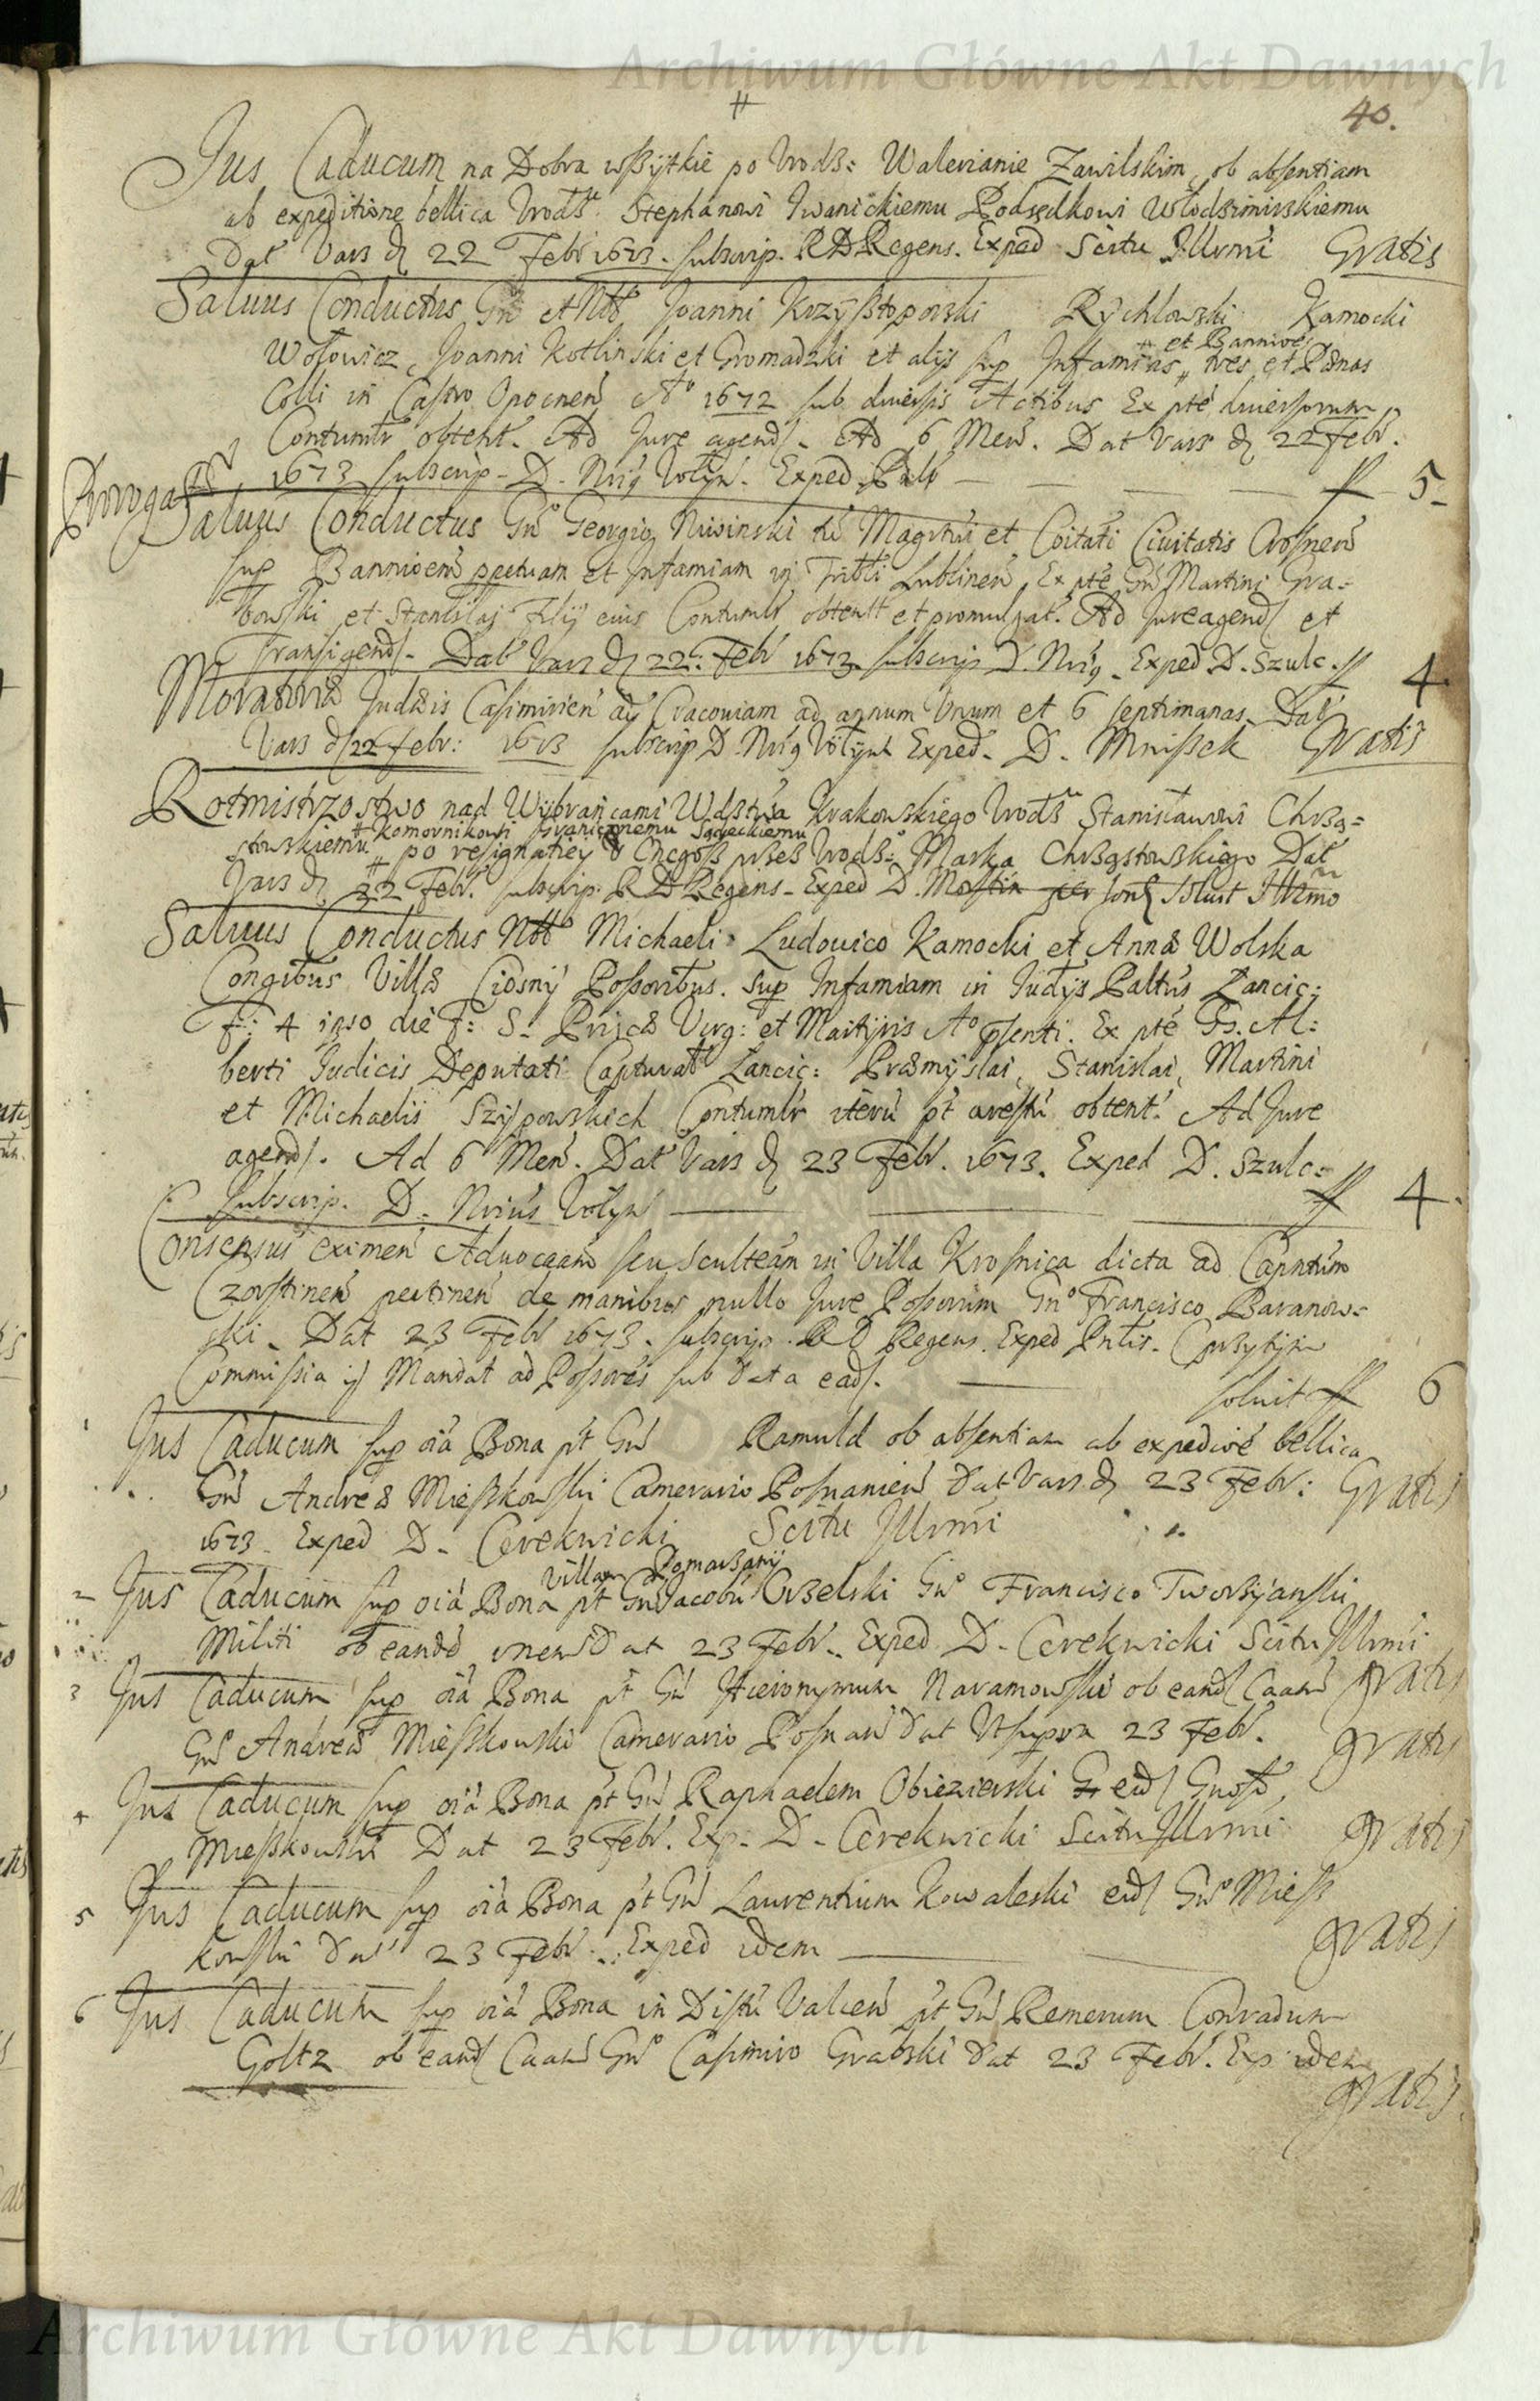 Archiwum Główne Akt Dawnych
40.
Jus Caducum na Dobra wszytkie po Urodz: Walerianie Zawilskim, ob absentiam
ab expeditione bellica Urodz. Stephanowi Iwanickiemu Podsędkowi Włodzimirskiemu
Dat Vars d 22 Febr 1673. subscrip. RD Regens. Exped Scitu Illrmi Gratis
Salvus Conductus Gn et Nob Joanni Krzysztoporski Rychlowski Kamocki
Wosowicz, Joanni Kotlinski et Gromadzki et alijs sup Infamias, et Bannioes nes et Pœnas
Colli in Castro Opocnen Ao 1672 sub diversis Actibus Ex pte diversorum
Contumtr obtent. Ad Jure agend. Ad 6 Men. Dat Vars d 22 Febr.
1673 subscrip. D. Nrius Volyn. Exped. f 5
Salvus Conductus Gno Georgio Niwinski Magrtui et Coitati Civitatis Crosnen
sup Bannioem ppetuam et Infamiam in Tribli Lublinen Ex pte Gn Martini Gra=
bowski et Stanislaj Filij eius Contumtr obtent et promulgat. Ad Jure agend et
Transigend. Dat Vars d 22. Febr 1673. subscrip D. Nrius. Exped D. Szulc. f 4.
Moratoria Judæis Casimirien ad Cracoviam ad annum Unum et 6 septimanas. Dat
Vars d 22 Febr: 1673 subscrip D. Nrius Volyn Exped. D. Mniszek Gratis
Rotmistrzostwo nad Wybrańcami Wdztwa Krakowskiego Urodz Stanisławowi Chrzą=
stowskiemu komornikowi granicznemu Sądeckiemu po resignatiey przez Urodz: Marka Chrząstowskiego Dat
Vars d 22 Febr. subscrip. RD Regens. Exped D. Illrmo
Salvus Conductus Nob Michaeli Ludovico Kamocki et Annæ Wolska
Congibus Villæ Ciosny Possoribus. Sup Infamiam in Judijs Paltus Lancic:
f: 4 ipso die f: S. Priscæ Virg: et Martyris Ao psenti. Ex pte Gs. Al:
berti Judicis Deputati Capturat Lancic: Præmyslai, Stanislai, Martini
et Michaelis Szypowskich Contumtr obtent. Ad Jure
agend. Ad 6 Men. Dat Vars d 23 Febr. 1673. Exped D. Szulc.
subscrip. D. Nrius Volyn f 4.
Consensus eximen Advocaam seu Sculteam in Villa Krosnica dicta ad Capntum
Czorstinen pertinen de manibus nullo Jure Possorum Gno Francisco Baranow=
ski. Dat 23 Febr 1673. subscrip. RD Regens. Exped Pntis.
Commissia y Mandat ad Possores sub Data ead. solvit f 6
1 Jus Caducum sup oia Bona pt Gn Ramuld ob absentiam ab expedioe bellica
Gn Andreæ Mieszkowski Camerario Posnanien Dat Vars d 23 Febr: Gratis
1673. Exped D. Cerekwicki Scitu Illrmi
2 Jus Caducum sup oia Bona Villam Domarzany pt Gn Jacobu Orzelski Gno Francisco Tworzyanski
Militi ob eande Dat 23 Febr. Exped D. Cerekwicki Scitu Illrmi
gratis
3 Jus Caducum sup oia Bona pt Gn Hieronymum Naramowski ob eand Caam
Gn Andreæ Mieszkowski Camerario Posnan Dat Ut supra 23 Febr. gratis
4 Jus Caducum sup oia Bona pt Gn Raphaelem Obiezierski eid Gnoso
Mieszkowski Dat 23 Febr. Exp. D. Cerekwicki Scitu Illrmi gratis
5 Jus Caducum sup oia Bona pt Gn Laurentium Kowaleski eid Gno Miesz
kowski Dat 23 Febr. Exped idem gratis
6 Jus Caducum sup oia Bona in Distu Valcen pt Gn Remerum Conradum
Goltz ob eand Caam Gno Casimiro Grabski Dat 23 Febr. Exp idem
gratis
Archiwum Główne Akt Dawnych